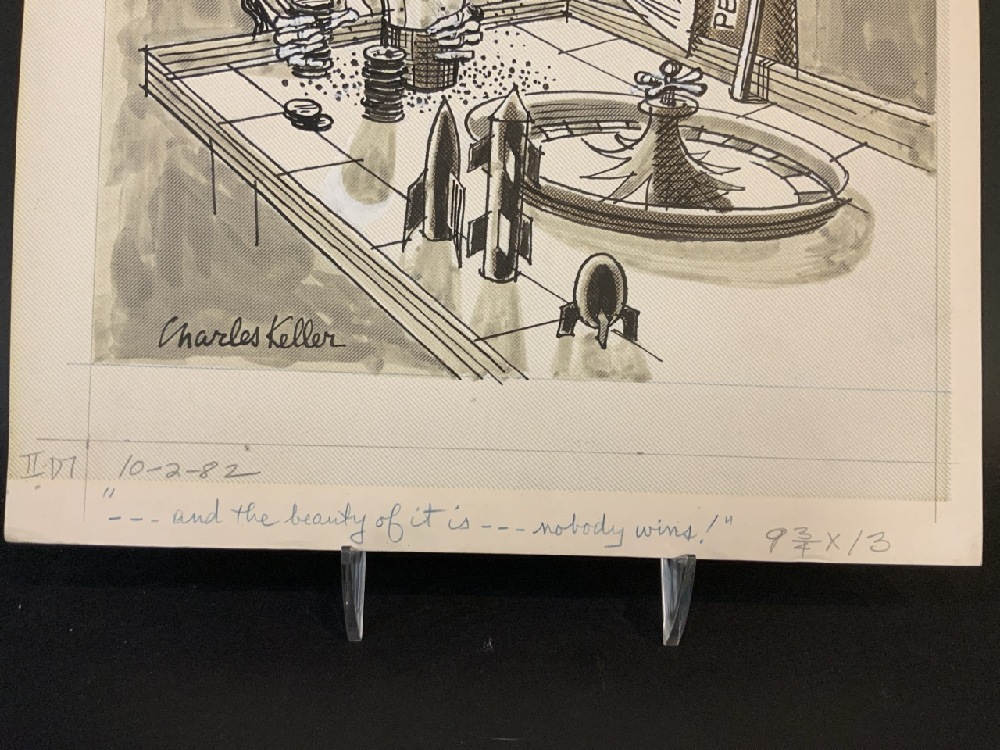 PE
Charles Keller
II D7 10-2-82
"--- and the beauty of it is --- nobody wins!" 9 3/4 X 13